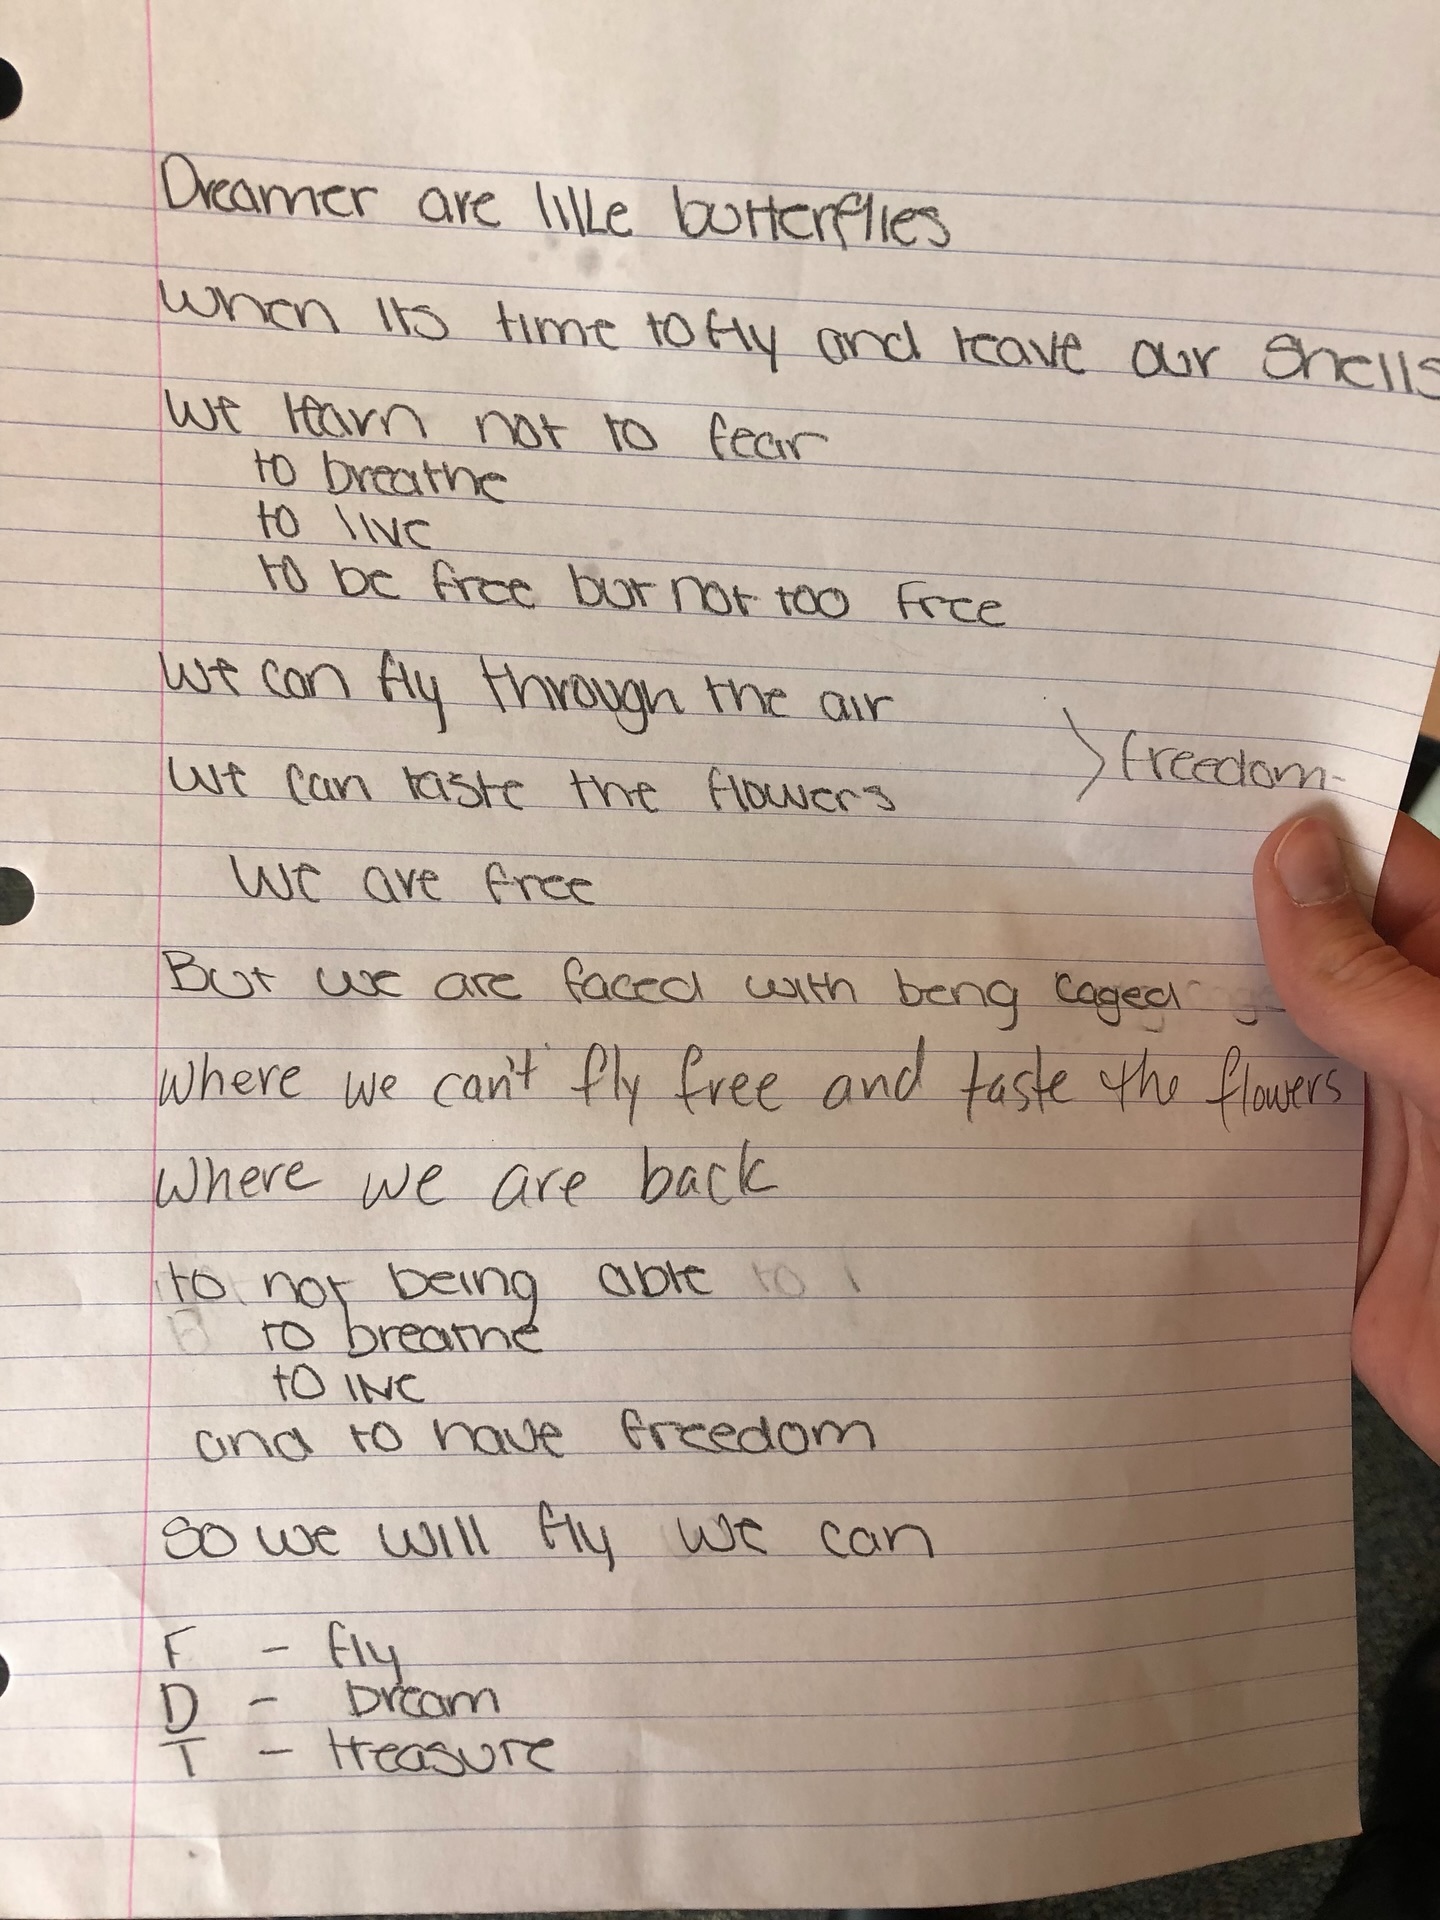 Dreamer are like butterflies
when its time to fly and leave our shells
we learn not to fear
to breathe
to live
to be free but not too free
we can fly through the air
we can taste the flowers
> freedom
we are free
But we are faced with beng caged
where we can't fly free and taste the flowers
where we are back
to not being able to l
to breathe
to live
and to have freedom
so we will fly we can
F - fly
D - Dream
T - treasure